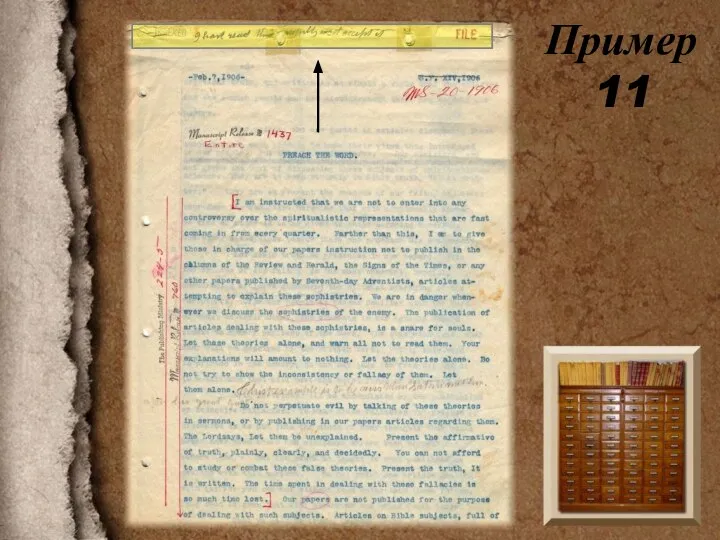 Пример
11
INDEXED I have read this carefully and accept it FILE
-Feb.7,1906- U.T. XIV,1906
MS-20-1906
Manuscript Release № 1437
Entire
PREACH THE WORD.
[I am instructed that we are not to enter into any
controversy over the spiritualistic representations that are fast
coming in from every quarter. Farther than this, I am to give
those in charge of our papers instruction not to publish in the
columns of the Review and Herald, the Signs of the Times, or any
other papers published by Seventh-day Adventists, articles at-
tempting to explain these sophistries. We are in danger when-
ever we discuss the sophistries of the enemy. The publication of
articles dealing with these sophistries, is a snare for souls.
Let these theories alone, and warn all not to read them. Your
explanations will amount to nothing. Let the theories alone. Do
not try to show the inconsistency or fallacy of them. Let
them alone.
Do not perpetuate evil by talking of these theories
in sermons, or by publishing in our papers articles regarding them.
The Lord says, Let them be unexplained. Present the affirmative
of truth, plainly, clearly, and decidedly. You can not afford
to study or combat these false theories. Present the truth, It
is written. The time spent in dealing with these fallacies is
so much time lost.] Our papers are not published for the purpose
of dealing with such subjects. Articles on Bible subjects, full of
The Publishing Ministry 224-5
Manuscript Release 760